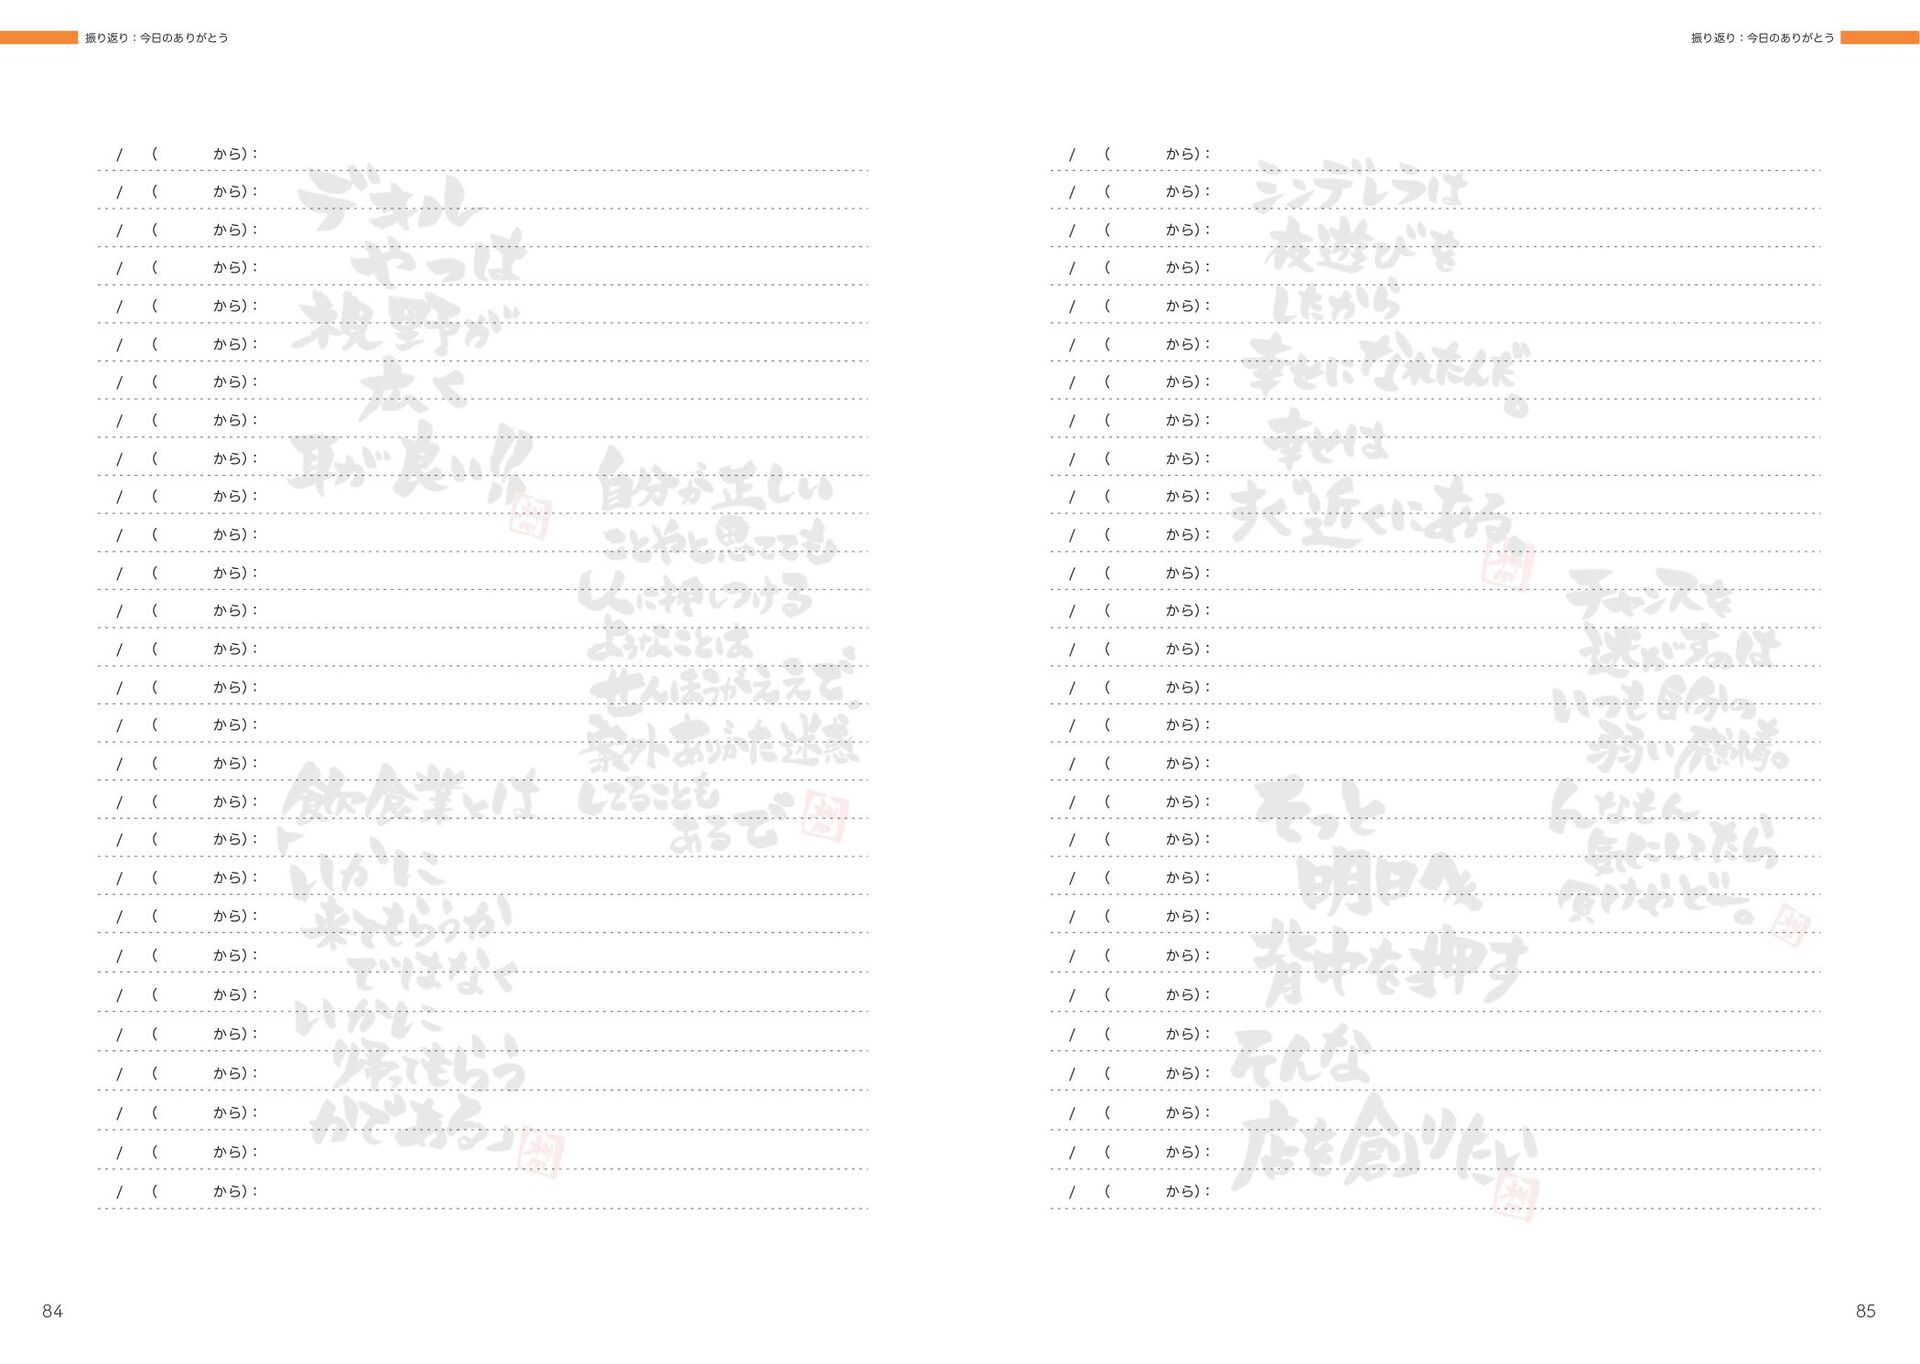 振り返り：今日のありがとう
/ （ から）：
/ （ から）：
/ （ から）：
/ （ から）：
/ （ から）：
/ （ から）：
/ （ から）：
/ （ から）：
/ （ から）：
/ （ から）：
/ （ から）：
/ （ から）：
/ （ から）：
/ （ から）：
/ （ から）：
/ （ から）：
/ （ から）：
/ （ から）：
/ （ から）：
/ （ から）：
/ （ から）：
/ （ から）：
/ （ から）：
/ （ から）：
/ （ から）：
/ （ から）：
/ （ から）：
/ （ から）：
デキル
やつは
視野が
広く
耳が良い!!
自分が正しい
ことやと思てても
人に押しつける
ようなことは
せんほうがええで。
案外ありがた迷惑
してることも
あるで
飲食業とは
「いかに
来てもらうか
ではなく
いかに
帰ってもらう
かである」
84
振り返り：今日のありがとう
/ （ から）：
/ （ から）：
/ （ から）：
/ （ から）：
/ （ から）：
/ （ から）：
/ （ から）：
/ （ から）：
/ （ から）：
/ （ から）：
/ （ から）：
/ （ から）：
/ （ から）：
/ （ から）：
/ （ から）：
/ （ から）：
/ （ から）：
/ （ から）：
/ （ から）：
/ （ から）：
/ （ から）：
/ （ から）：
/ （ から）：
/ （ から）：
/ （ から）：
/ （ から）：
/ （ から）：
/ （ から）：
シンデレラは
夜遊びを
したから
幸せになれたんだ。
幸せは
すぐ近くにある。
チャンスを
逃がすのは
いつも自分の
弱い感情。
んなもん
気にしてたら
負けやどー。
そっと
明日へ
背中を押す
そんな
店を創りたい
85